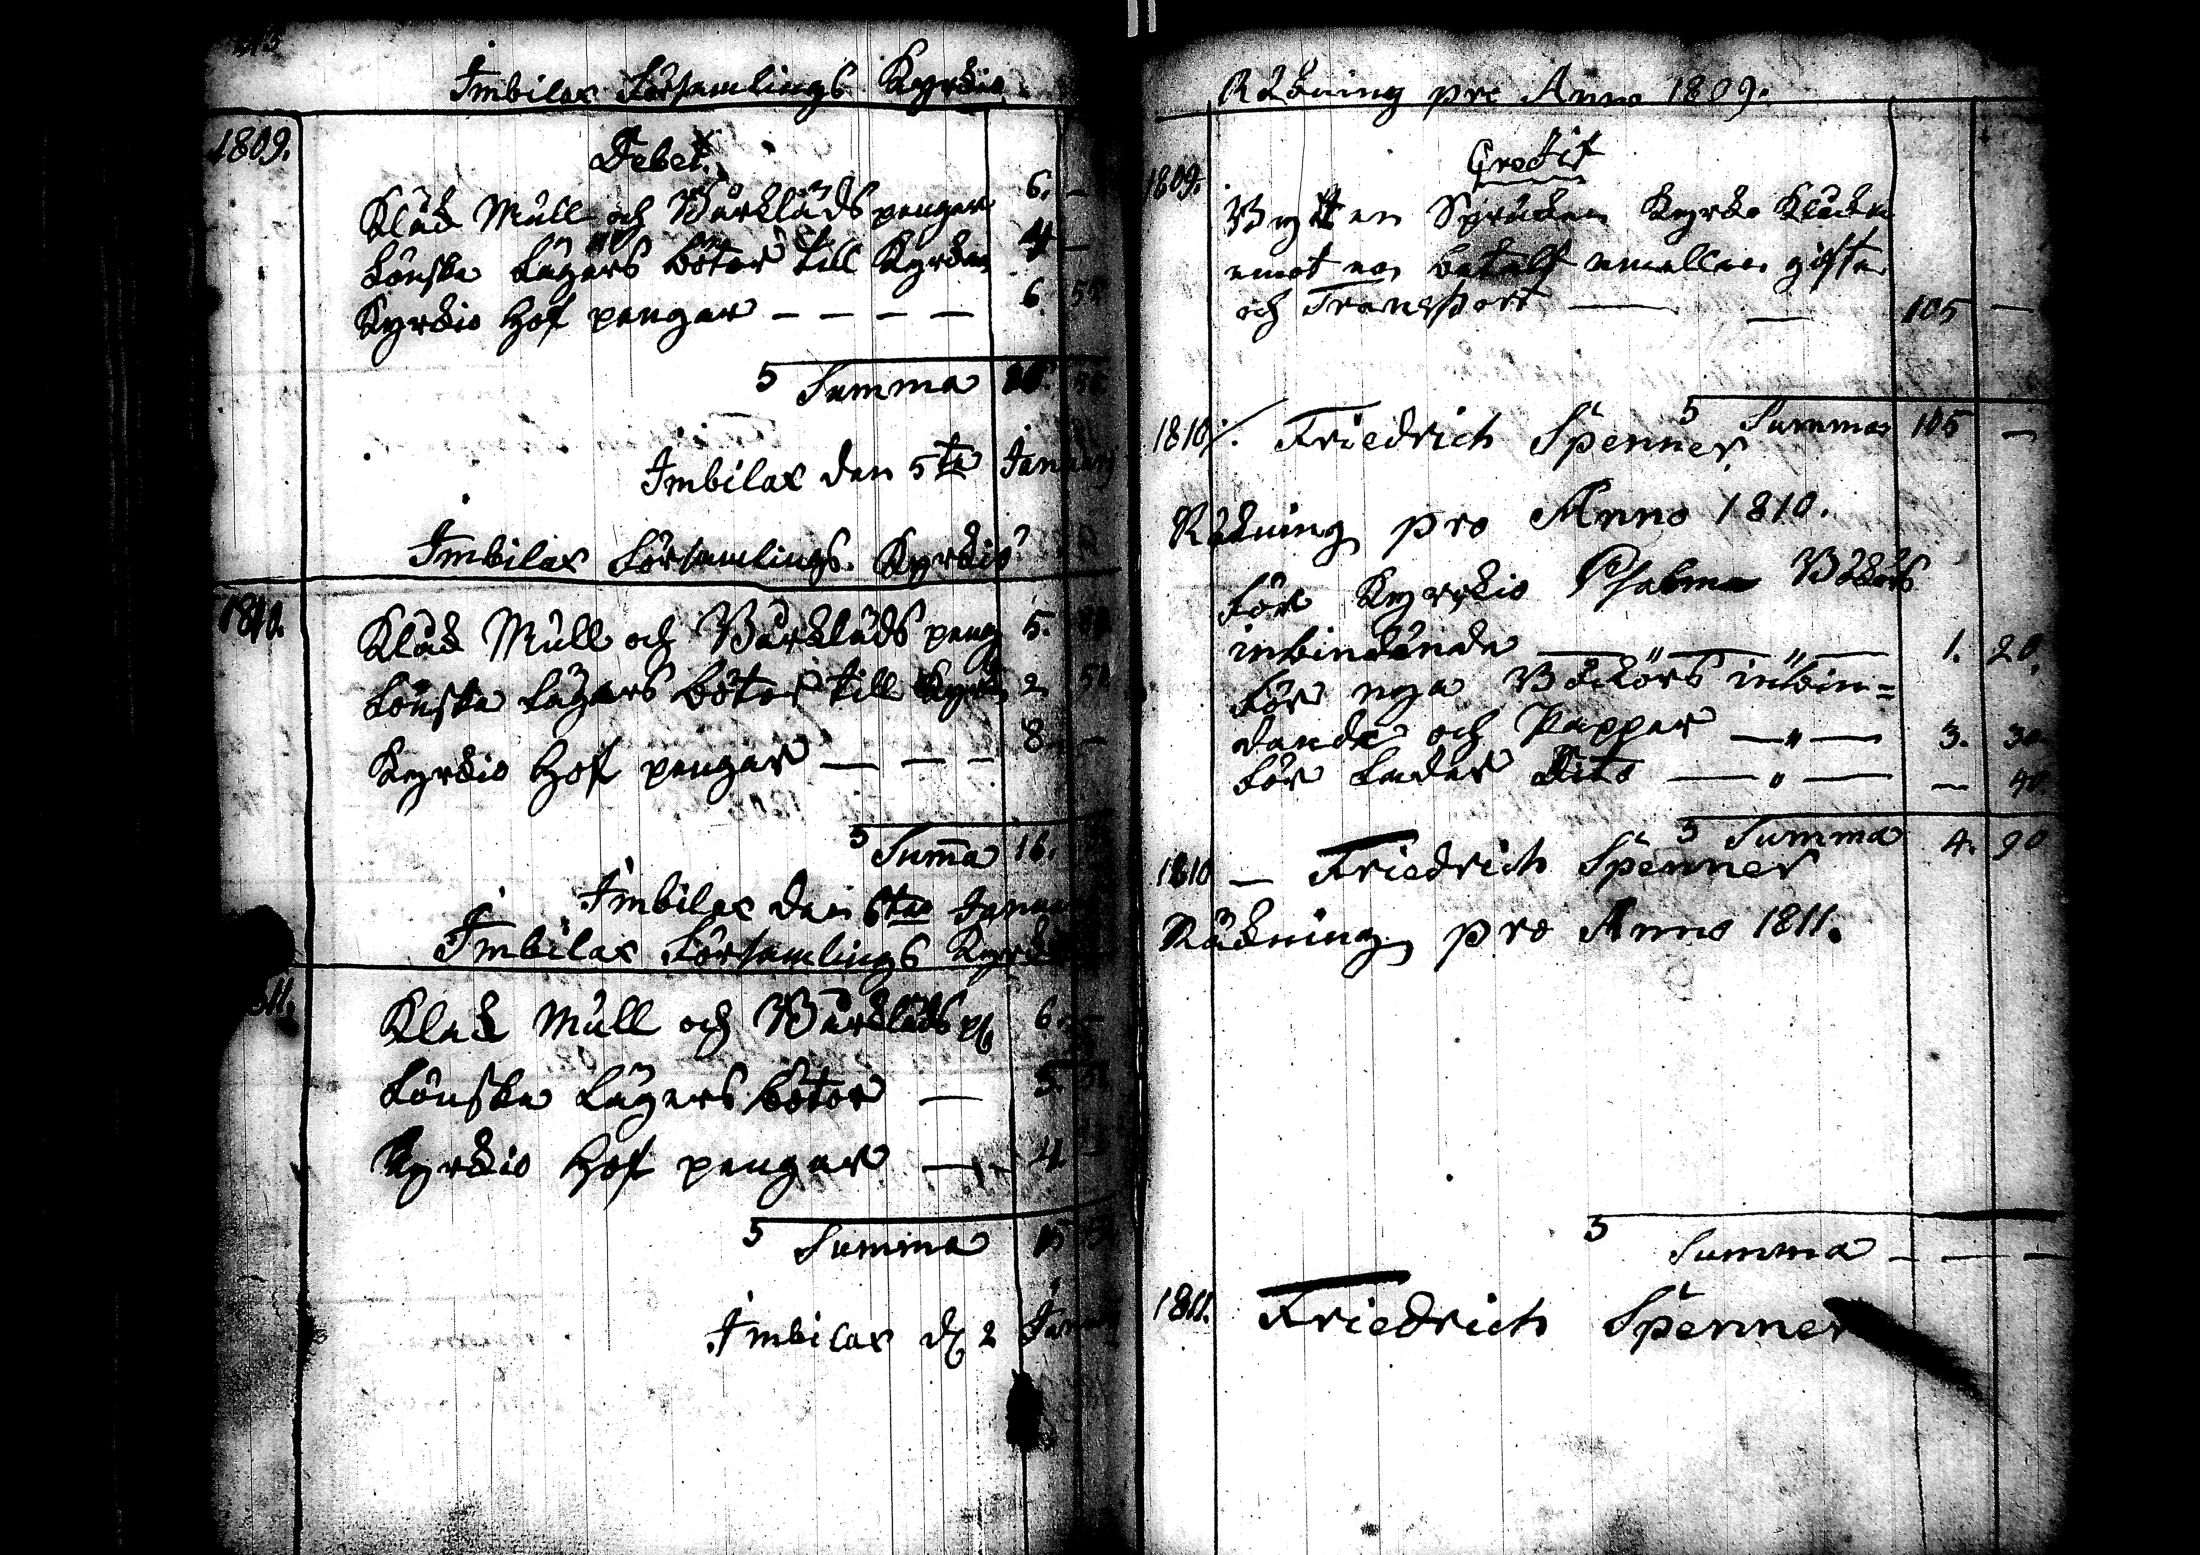 Imbilax Församlings Kyrkio
1809.
Debet.
Klåck Mull och Bårklåds pengar 6. —
Lönska Lägers böter till Kyrkan 4 —
Kyrkio Hof pengar — — — — 6
Summa
Imbilax den 5te Januarij
Imbilax Församlings Kyrkio
1810.
Klåck Mull och Bårklåds peng 5.
Lönska Lägers böter till Kyrk 2
Kyrkio Hof pengar — — — 8 —
Summa 16.
Imbilax den 6ten Januar
Imbilax Församlings Kyrkio
Klåck Mull och Bårklåds 6. —
Lönska Lägers böter — 5.
Kyrkio Hof pengar — 4
Summa 15
Imbilax d. 2 Januarij
Räkning pro Anno 1809.
Credit
1809.
Byt en Spräckan Kyrko Klåcka
emot en betalt emellan gifte
och Transport — — 105 —
Summa 105 —
1810. Friedrich Spenner
Räkning pro Anno 1810.
För Kyrkio Psalm Böckers
inbindande — " — " — 1. 20.
För nya Böckers inbin=
dande och Papper — " — 3. 30.
För Läder Dito — " — — 40.
Summa 4. 90
1810 — Friedrich Spenner
Räkning pro Anno 1811.
Summa — — —
1811. Friedrich Spenner